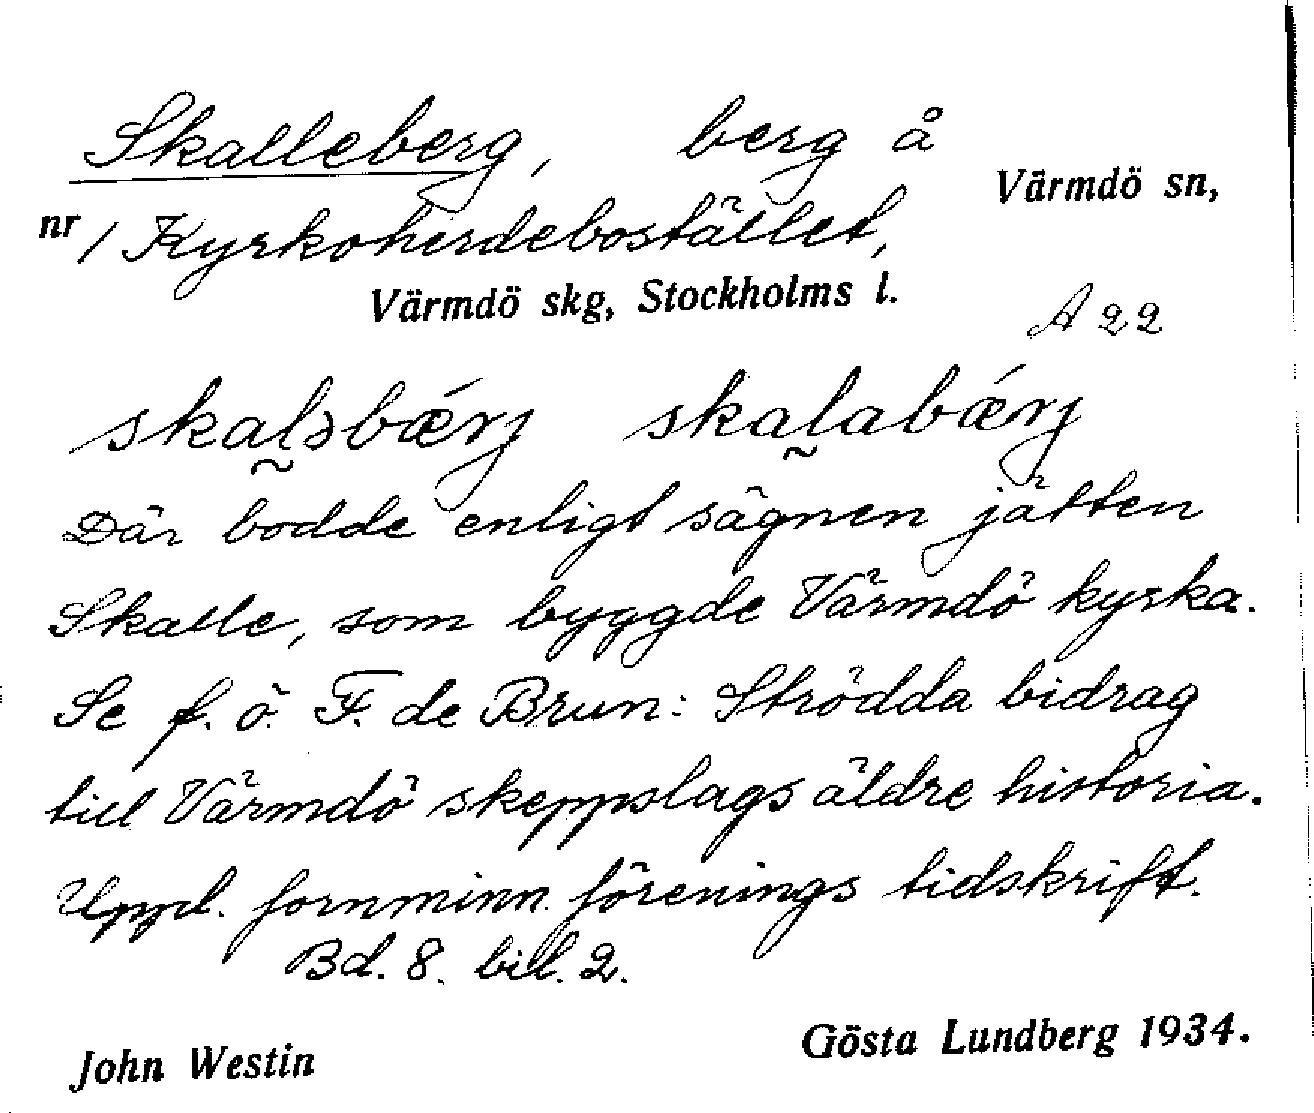 Skalleberg, berg å
Värmdö sn,
nr 1 Kyrkoherdebostället,
Värmdö skg, Stockholms l.
A 22
skal̰ɔbǽrj skal̰abǽrj
Där bodde enligt sägnen jätten
Skalle, som byggde Värmdö kyrka.
Se f. ö. F. de Brun: Strödda bidrag
till Värmdö skeppslags äldre historia.
Uppl. fornminn. förenings tidskrift.
Bd. 8. bil. 2.
John Westin
Gösta Lundberg 1934.